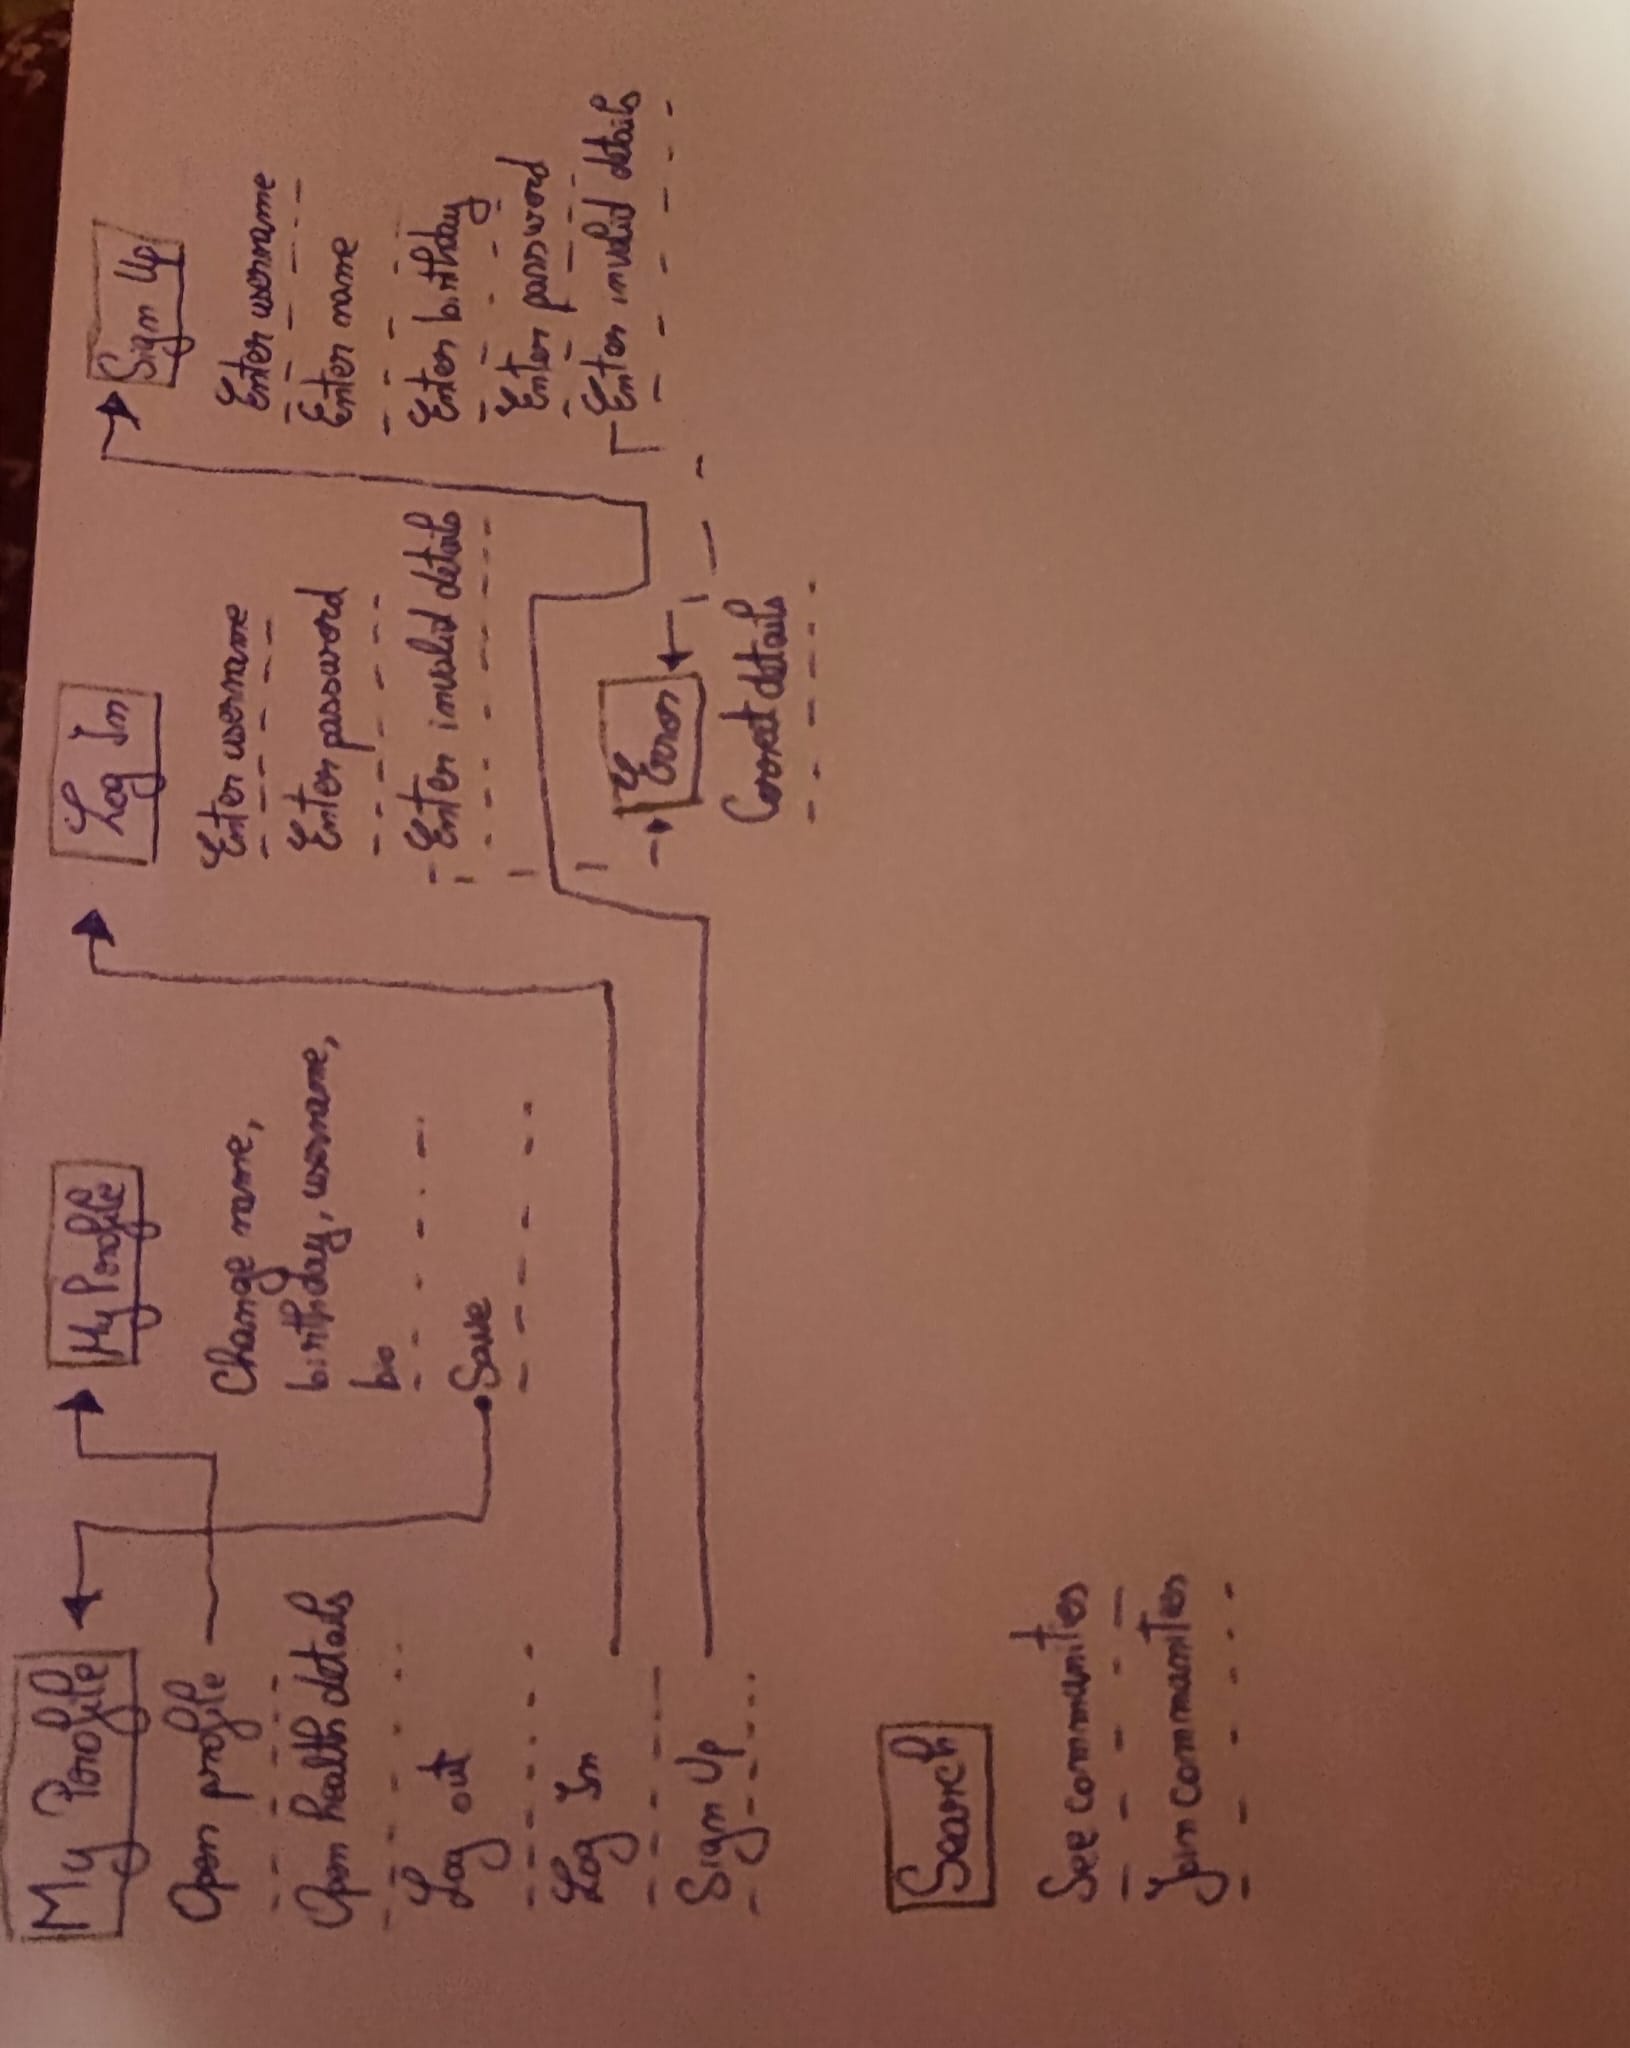 My Profile
Open profile
Open health details
Log out
Log In
Sign Up
My Profile
Change name,
birthday, username,
bio
Save
Log In
Enter username
Enter password
Enter invalid details
Error
Correct details
Sign Up
Enter username
Enter name
Enter birthday
Enter password
Enter invalid details
Search
See communities
Join communities